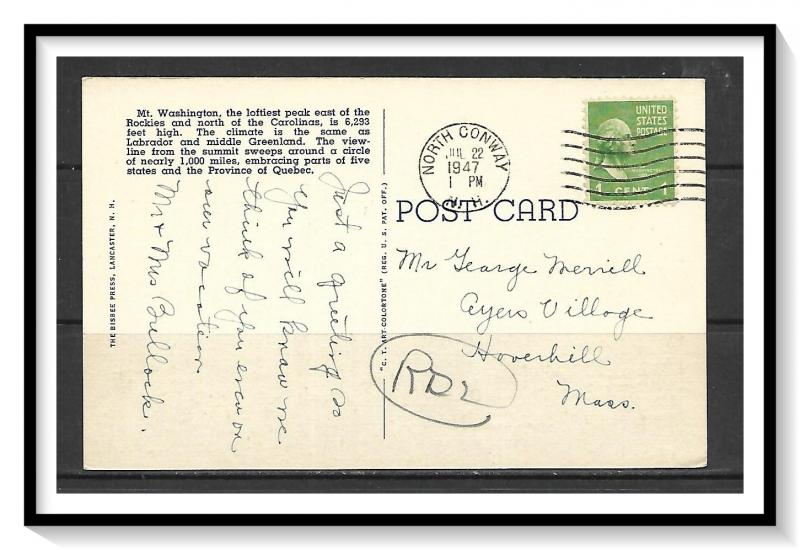 Mt. Washington, the loftiest peak east of the
Rockies and north of the Carolinas, is 6,293
feet high. The climate is the same as
Labrador and middle Greenland. The view-
line from the summit sweeps around a circle
of nearly 1,000 miles, embracing parts of five
states and the Province of Quebec.
Just a greeting so
you will know we
think of you even on
our vacation
Mr & Mrs Bullock.
THE BISBEE PRESS, LANCASTER, N. H.
"C. T. ART-COLORTONE" (REG. U. S. PAT. OFF.)
NORTH CONWAY
JUL 22
1947
1 PM
N. H.
UNITED
STATES
POSTAGE
WASHINGTON
1 CENT 1
POST CARD
Mr George Merrill
Ayers Village
Haverhill
Mass.
RD2